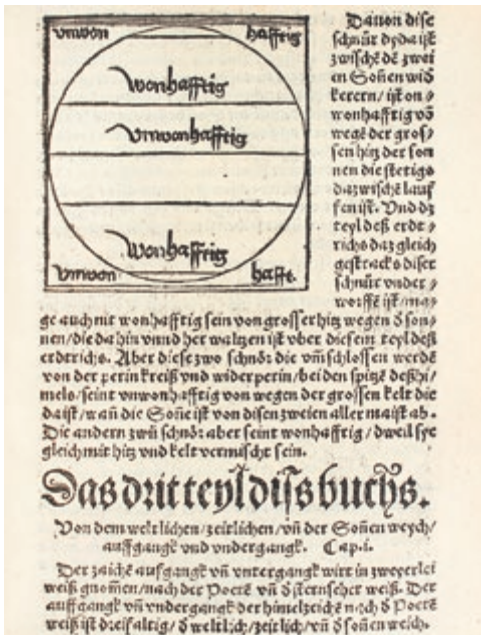 vnwon hafftig
wonhafftig
vnwonhafftig
wonhafftig
vnwon hafft.
Dauon dise
schnůr dz da ist
zwischē dē zwei
en Soñen wid
kerern/ ist on⸗
wonhafftig vō
wegē der gros⸗
sen hitz der son
nen die stetigs
dazwischē lauf
fen ist. Vnd dz
teyl deß erdt⸗
richs daz gleich
gestracks diser
schnůr vnder⸗
worffē ist/ma⸗
ge auch nit wonhafftig sein von grosser hitz wegen d̄ son⸗
nen/die da hin vnnd her waltzen ist vber diesem teyl deß
erdterichs. Aber diese zwo schnōr die vm̄schlossen werdē
von der perin kreiß vnd widerperin/bei den spitzē deß hi⸗
mels/seint vnwonhafftig von wegen der grossen kelt die
da ist/wañ die Soñe ist von disen zweien aller maist ab.
Die andern zwů schnōr aber seint wonhafftig/dweil sye
gleich mit hitz vnd kelt vermischt sein.
Das drit teyl diss buchs.
Von dem weltlichen/zeitlichen/vñ der Soñen weych/
auffgangk vnd vndergangk. Cap.i.
Der zaichē aufgangk vñ vntergangk wirt in zweyerlei
weiß gnommen/nach der Poetē vñ d̄ sternseher weiß. Der
auffgangk vñ vndergangk der himelzeichē nach d̄ Poetē
weiß ist dreifaltig/d̄ weltlich/zeitlich/vñ d̄ Soñen weich.